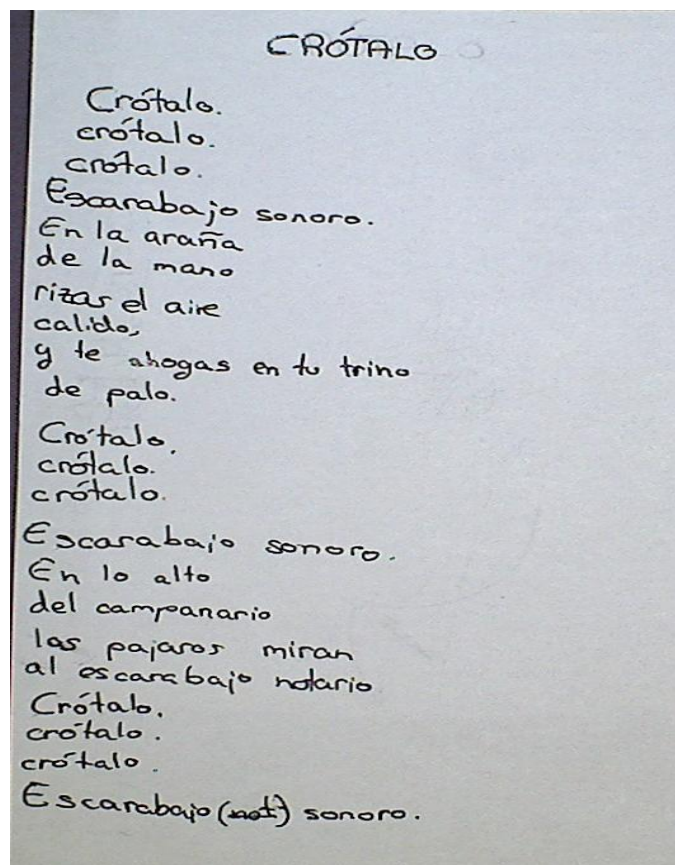 CRÓTALO
Crótalo.
crótalo.
crótalo.
Escarabajo sonoro.
En la araña
de la mano
rizas el aire
calido,
y te ahogas en tu trino
de palo.
Crótalo.
crótalo.
crótalo.
Escarabajo sonoro.
En lo alto
del campanario
los pajaros miran
al escarabajo notario
Crótalo.
crótalo.
crótalo.
Escarabajo (not) sonoro.